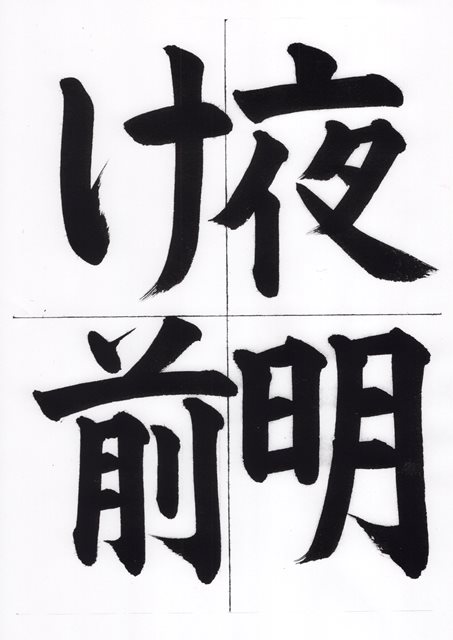 夜明
け前